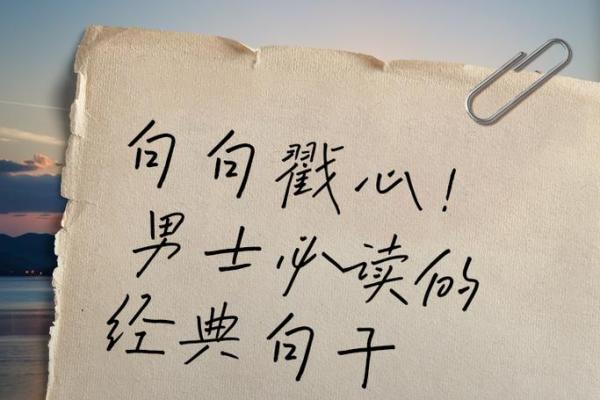 句句戳心！
男士必读的
经典句子